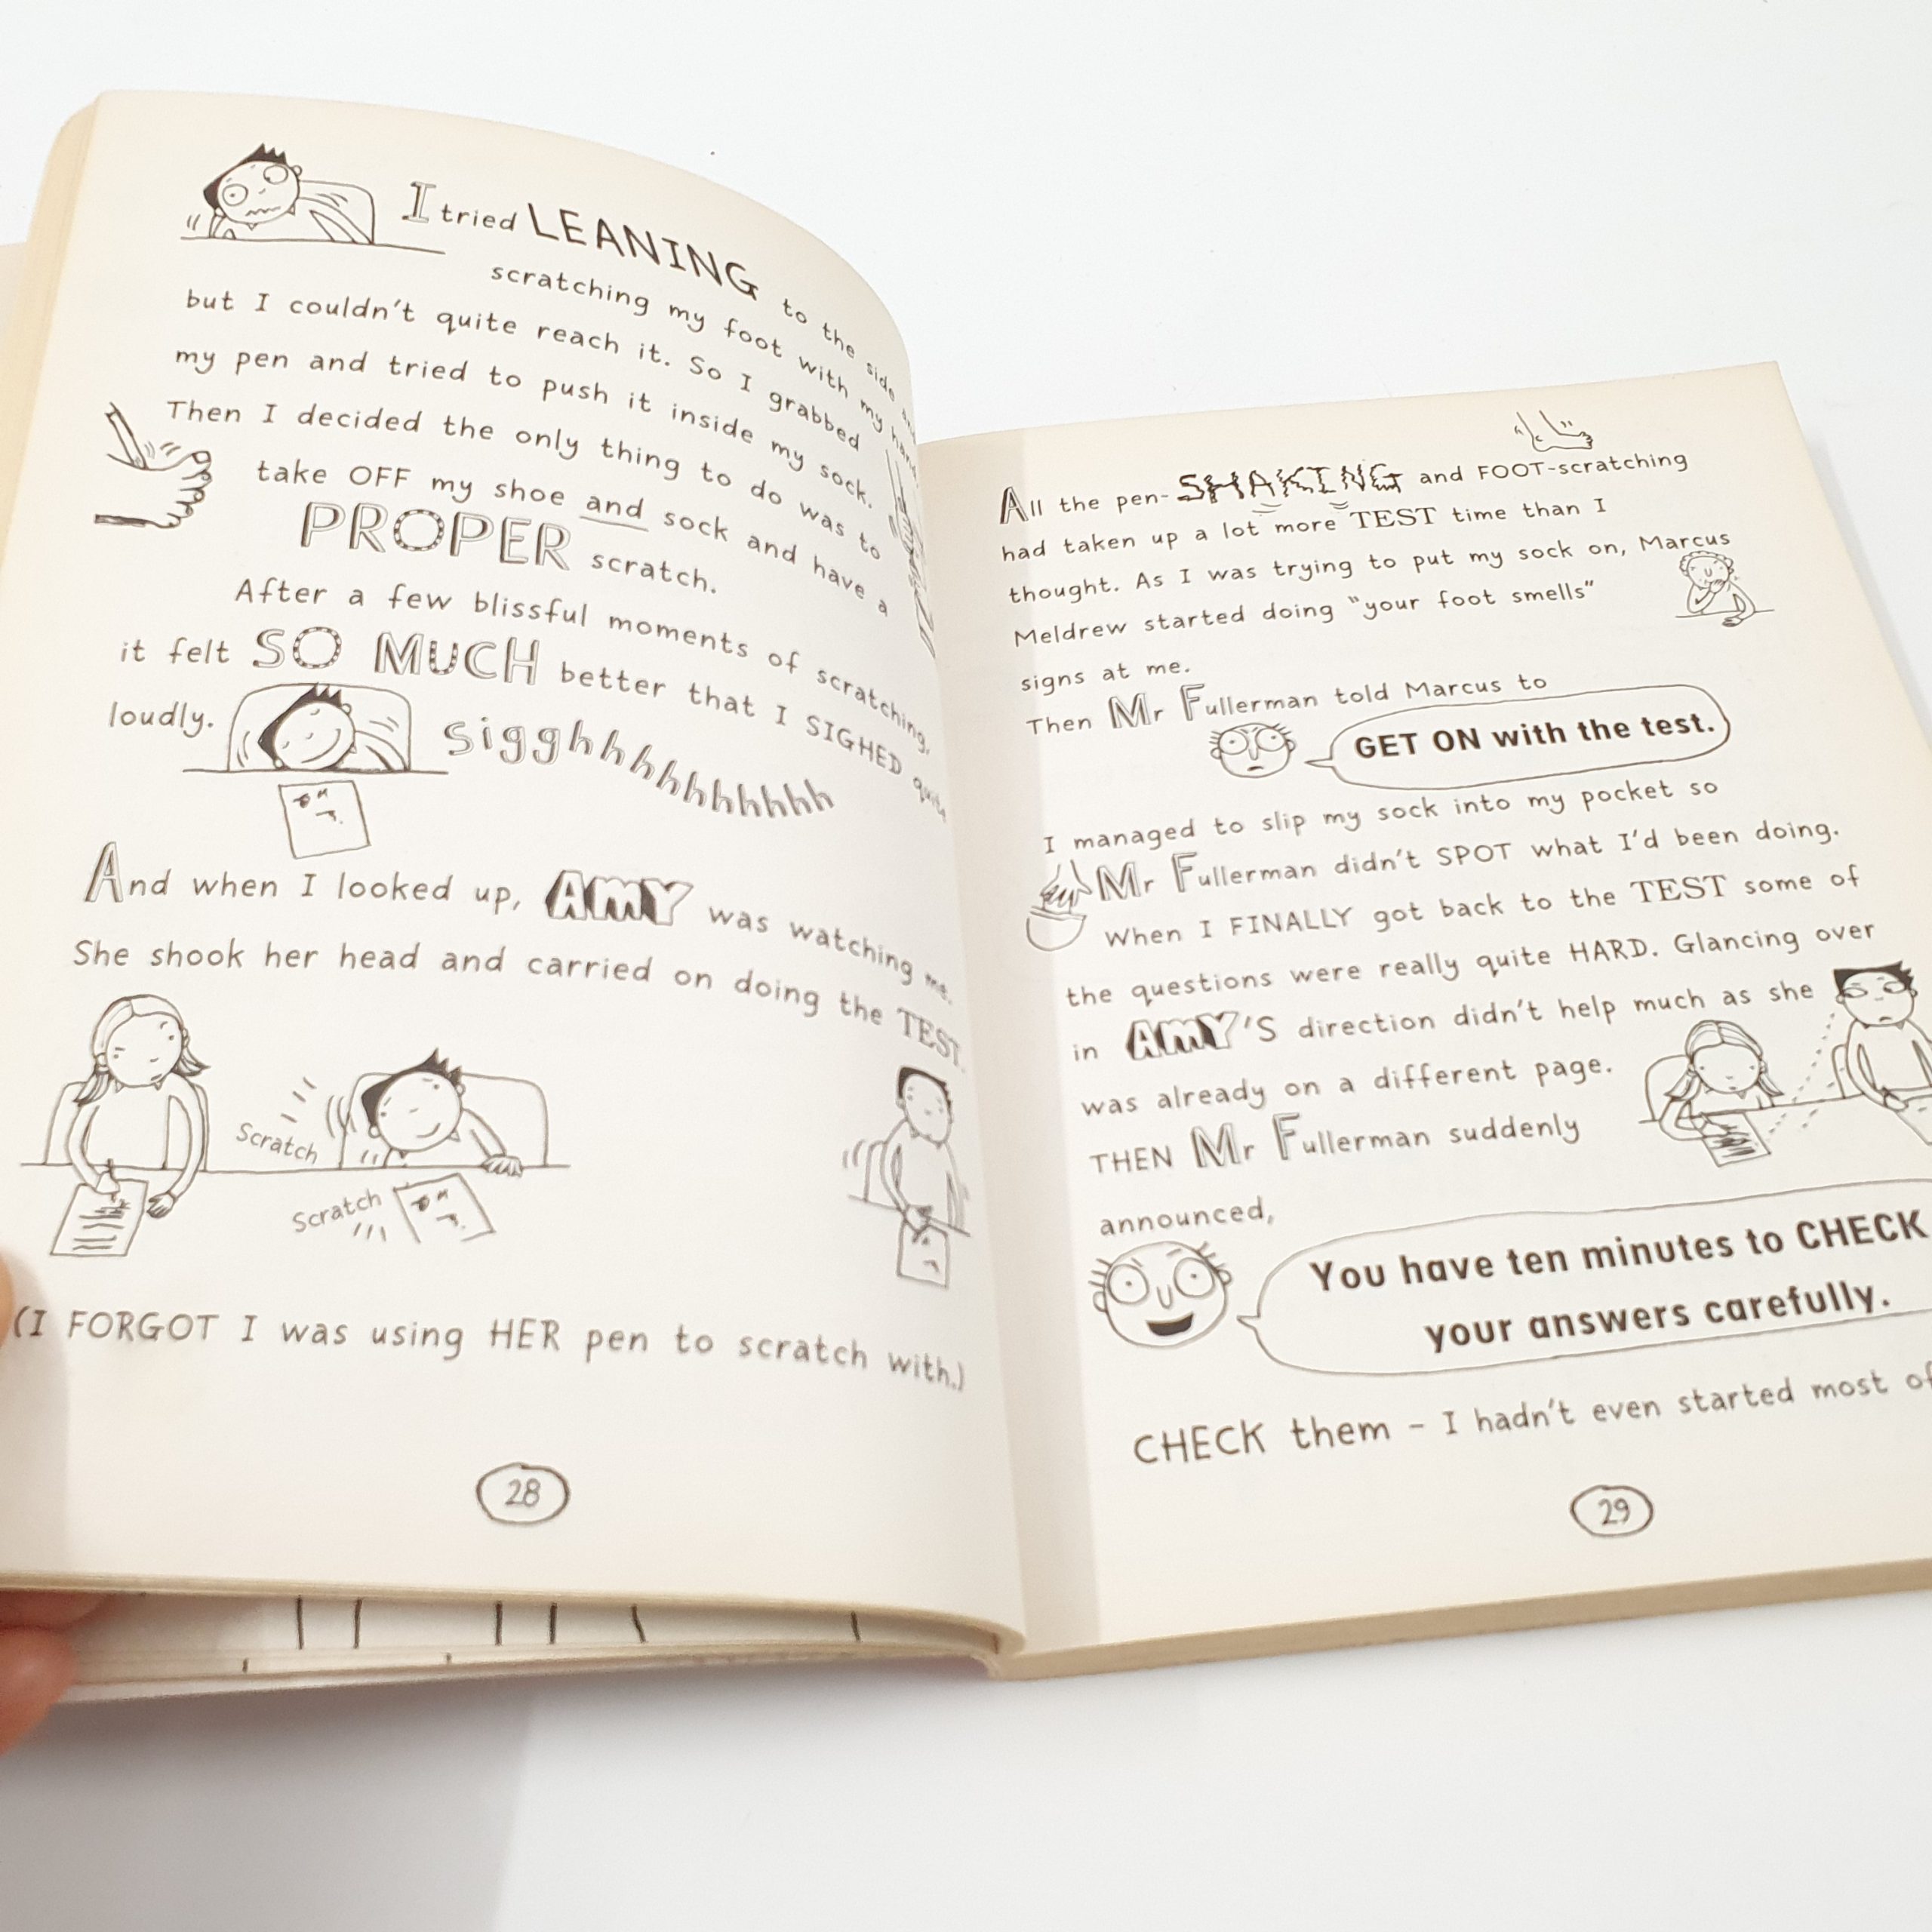 I tried LEANING to the side and
scratching my foot with my hand
but I couldn't quite reach it. So I grabbed
my pen and tried to push it inside my sock.
Then I decided the only thing to do was to
take OFF my shoe and sock and have a
PROPER scratch.
After a few blissful moments of scratching,
it felt SO MUCH better that I SIGHED quite
loudly.
sigghhhhhhhhhhh
And when I looked up, AMY was watching me.
She shook her head and carried on doing the TEST.
Scratch
Scratch
(I FORGOT I was using HER pen to scratch with.)
28
All the pen-SHAKING and FOOT-scratching
had taken up a lot more TEST time than I
thought. As I was trying to put my sock on, Marcus
Meldrew started doing "your foot smells"
signs at me.
Then Mr Fullerman told Marcus to
GET ON with the test.
I managed to slip my sock into my pocket so
Mr Fullerman didn't SPOT what I'd been doing.
When I FINALLY got back to the TEST some of
the questions were really quite HARD. Glancing over
in AMY'S direction didn't help much as she
was already on a different page.
THEN Mr Fullerman suddenly
announced,
You have ten minutes to CHECK
your answers carefully.
CHECK them - I hadn't even started most of
29